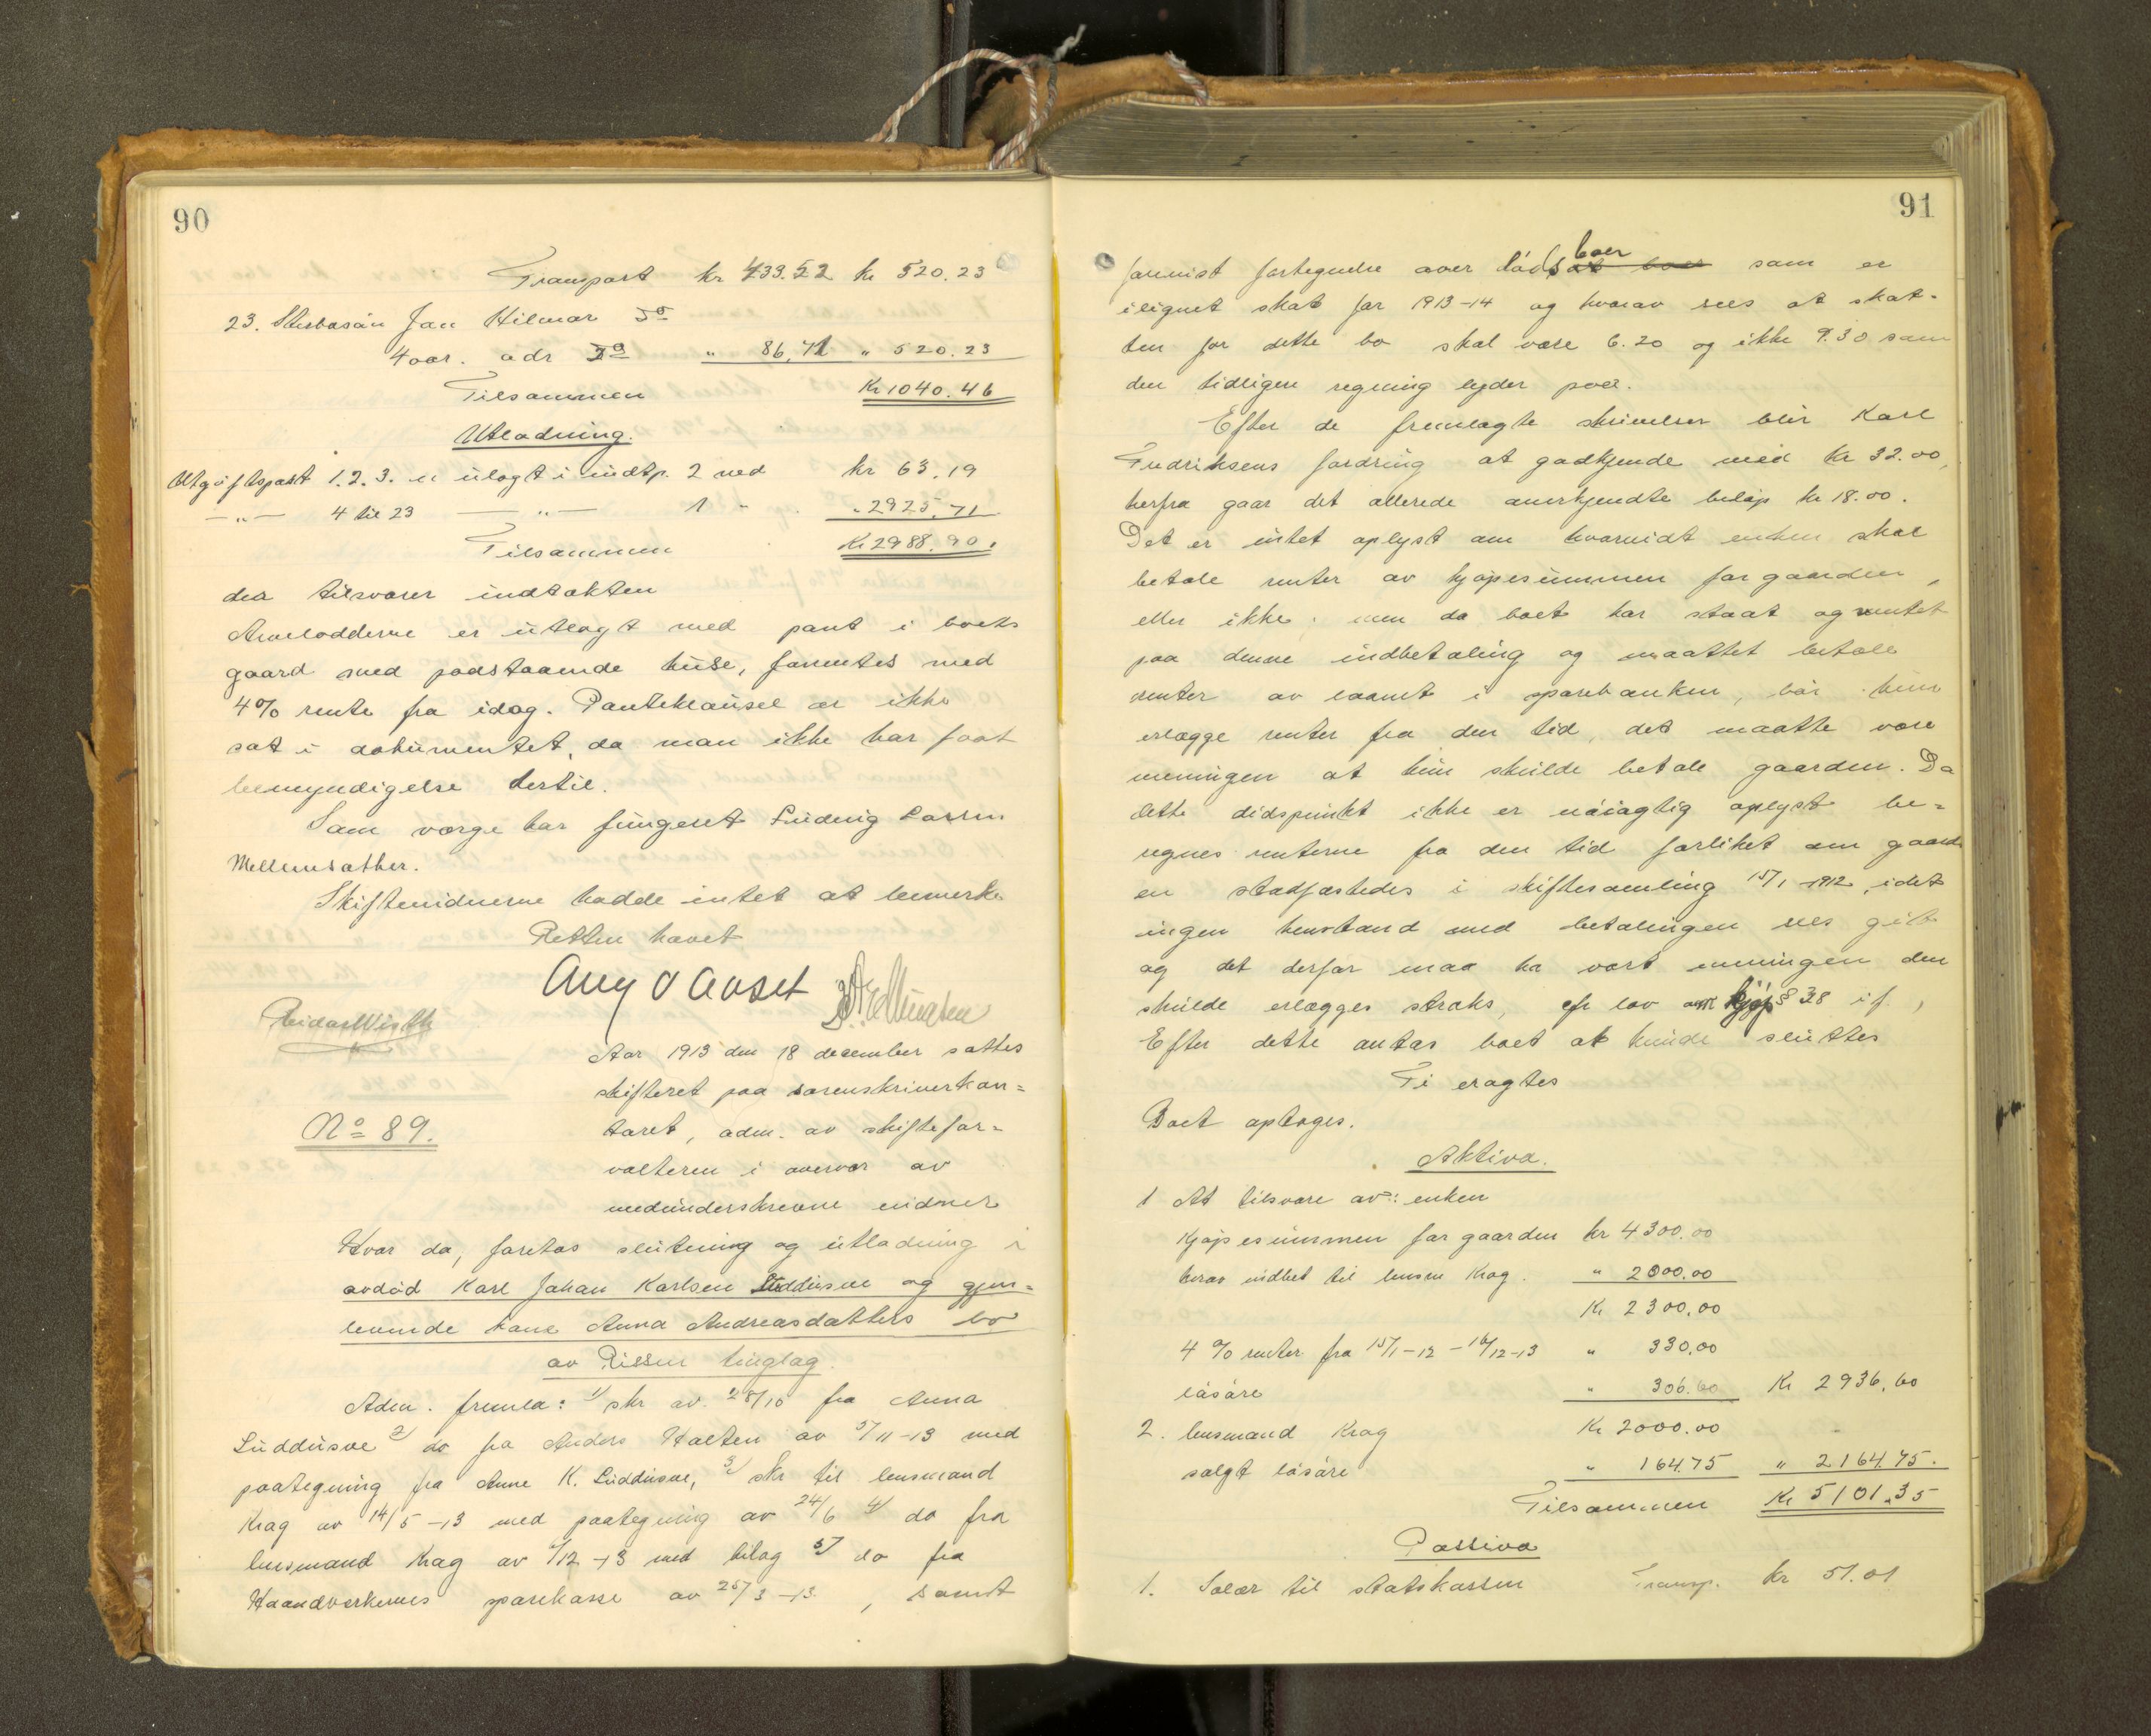 90
Transport kr 433.52 kr 520.23
23. Stesbasän Jan Hilmar do
4 aar. adr do " 86,71 " 520.23
Tilsammen Kr 1040.46
Utlodning.
Utgiftspost 1.2.3. er utlagt i indtp. 2 med kr 63.19
—"— 4 til 23 —"— 1 " " 2925.71
Tilsammen Kr 2988.90.
der tilsvarer indtækten
Arvelodderne er utlagt med pant i boets
gaard med paastaaende huse, forrentes med
4% rente fra idag. Panteklausul er ikke
sat i dokumentet, da man ikke har faat
bemyndigelse dertil.
Som verge har fungeret Ludvig Larsen
Mellemsæther.
Skiftevidnerne hadde intet at bemerke
Retten hævet
Aug O Aaset
Reidar Wirth
Aar 1913 den 18 december sattes
skifteret paa sorenskriverkon=
toret, adm. av skiftefor=
valteren i overvær av
medunderskrevne vidner
No 89.
Hvor da, foretas slutning og utlodning i
avdød Karl Johan Karlsen Luddusve og gjen=
levende kone Anna Andreasdatters bo
av Rissen tinglag.
Adm. fremla: 1/ skr av 28/10 fra Anna
Luddusve 2/ do fra Anders Halten av 5/11-13 med
paategning fra Anne K. Luddusve, 3/ skr til lensmand
Krag av 14/5-13 med paategning av 24/6 4/ do fra
lensmand Krag av 6/12-13 med bilag 5/ do fra
Haandverkernes sparekasse av 25/3-13, samt
91
fornyet fortegnelse over dødsboer som er
ilignet skat for 1913-14 og hvorav sees at skat-
ten for dette bo skal være 6.20 og ikke 9.30 som
den tidligere regning lyder paa.
Efter de fremlagte skrivelser blir Karl
Fredriksens fordring at godkjende med kr 32.00,
herfra gaar det allerede anerkjendte beløp kr 18.00.
Det er intet oplyst om hvorvidt enken skal
betale renter av kjøpesummen for gaarden,
eller ikke; men da boet har staat og ventet
paa denne indbetaling og maattet betale
renter av laanet i sparebanken, bør hun
erlægge renter fra den tid, det maatte være
meningen at hun skulde betale gaarden. Da
dette tidspunkt ikke er nøiagtig oplyst be=
regnes renterne fra den tid forliket om gaard
en stadfæstedes i skiftesamling 15/1-1912, idet
ingen henstand med betalingen sees git
og det derfor maa ha vært meningen den
skulde erlægges straks, cfr lov om kjøp § 38 if,
Efter dette antas boet at kunde sluttes
Ti eragtes
Boet optages.
Aktiva.
1 At tilsvare av: enken
Kjøpesummen for gaarden kr 4300.00
herav indbet til lensm Krag. " 2000.00
Kr 2300.00
4% renter fra 15/1-12 - 16/12-13 " 330.00
løsøre " 306.60 Kr 2936.60
2. lensmand Krag Kr 2000.00
solgt løsøre " 164.75 " 2164.75.
Tilsammen Kr 5101.35
Passiva
1. Salær til statskassen Transp. kr 51.01